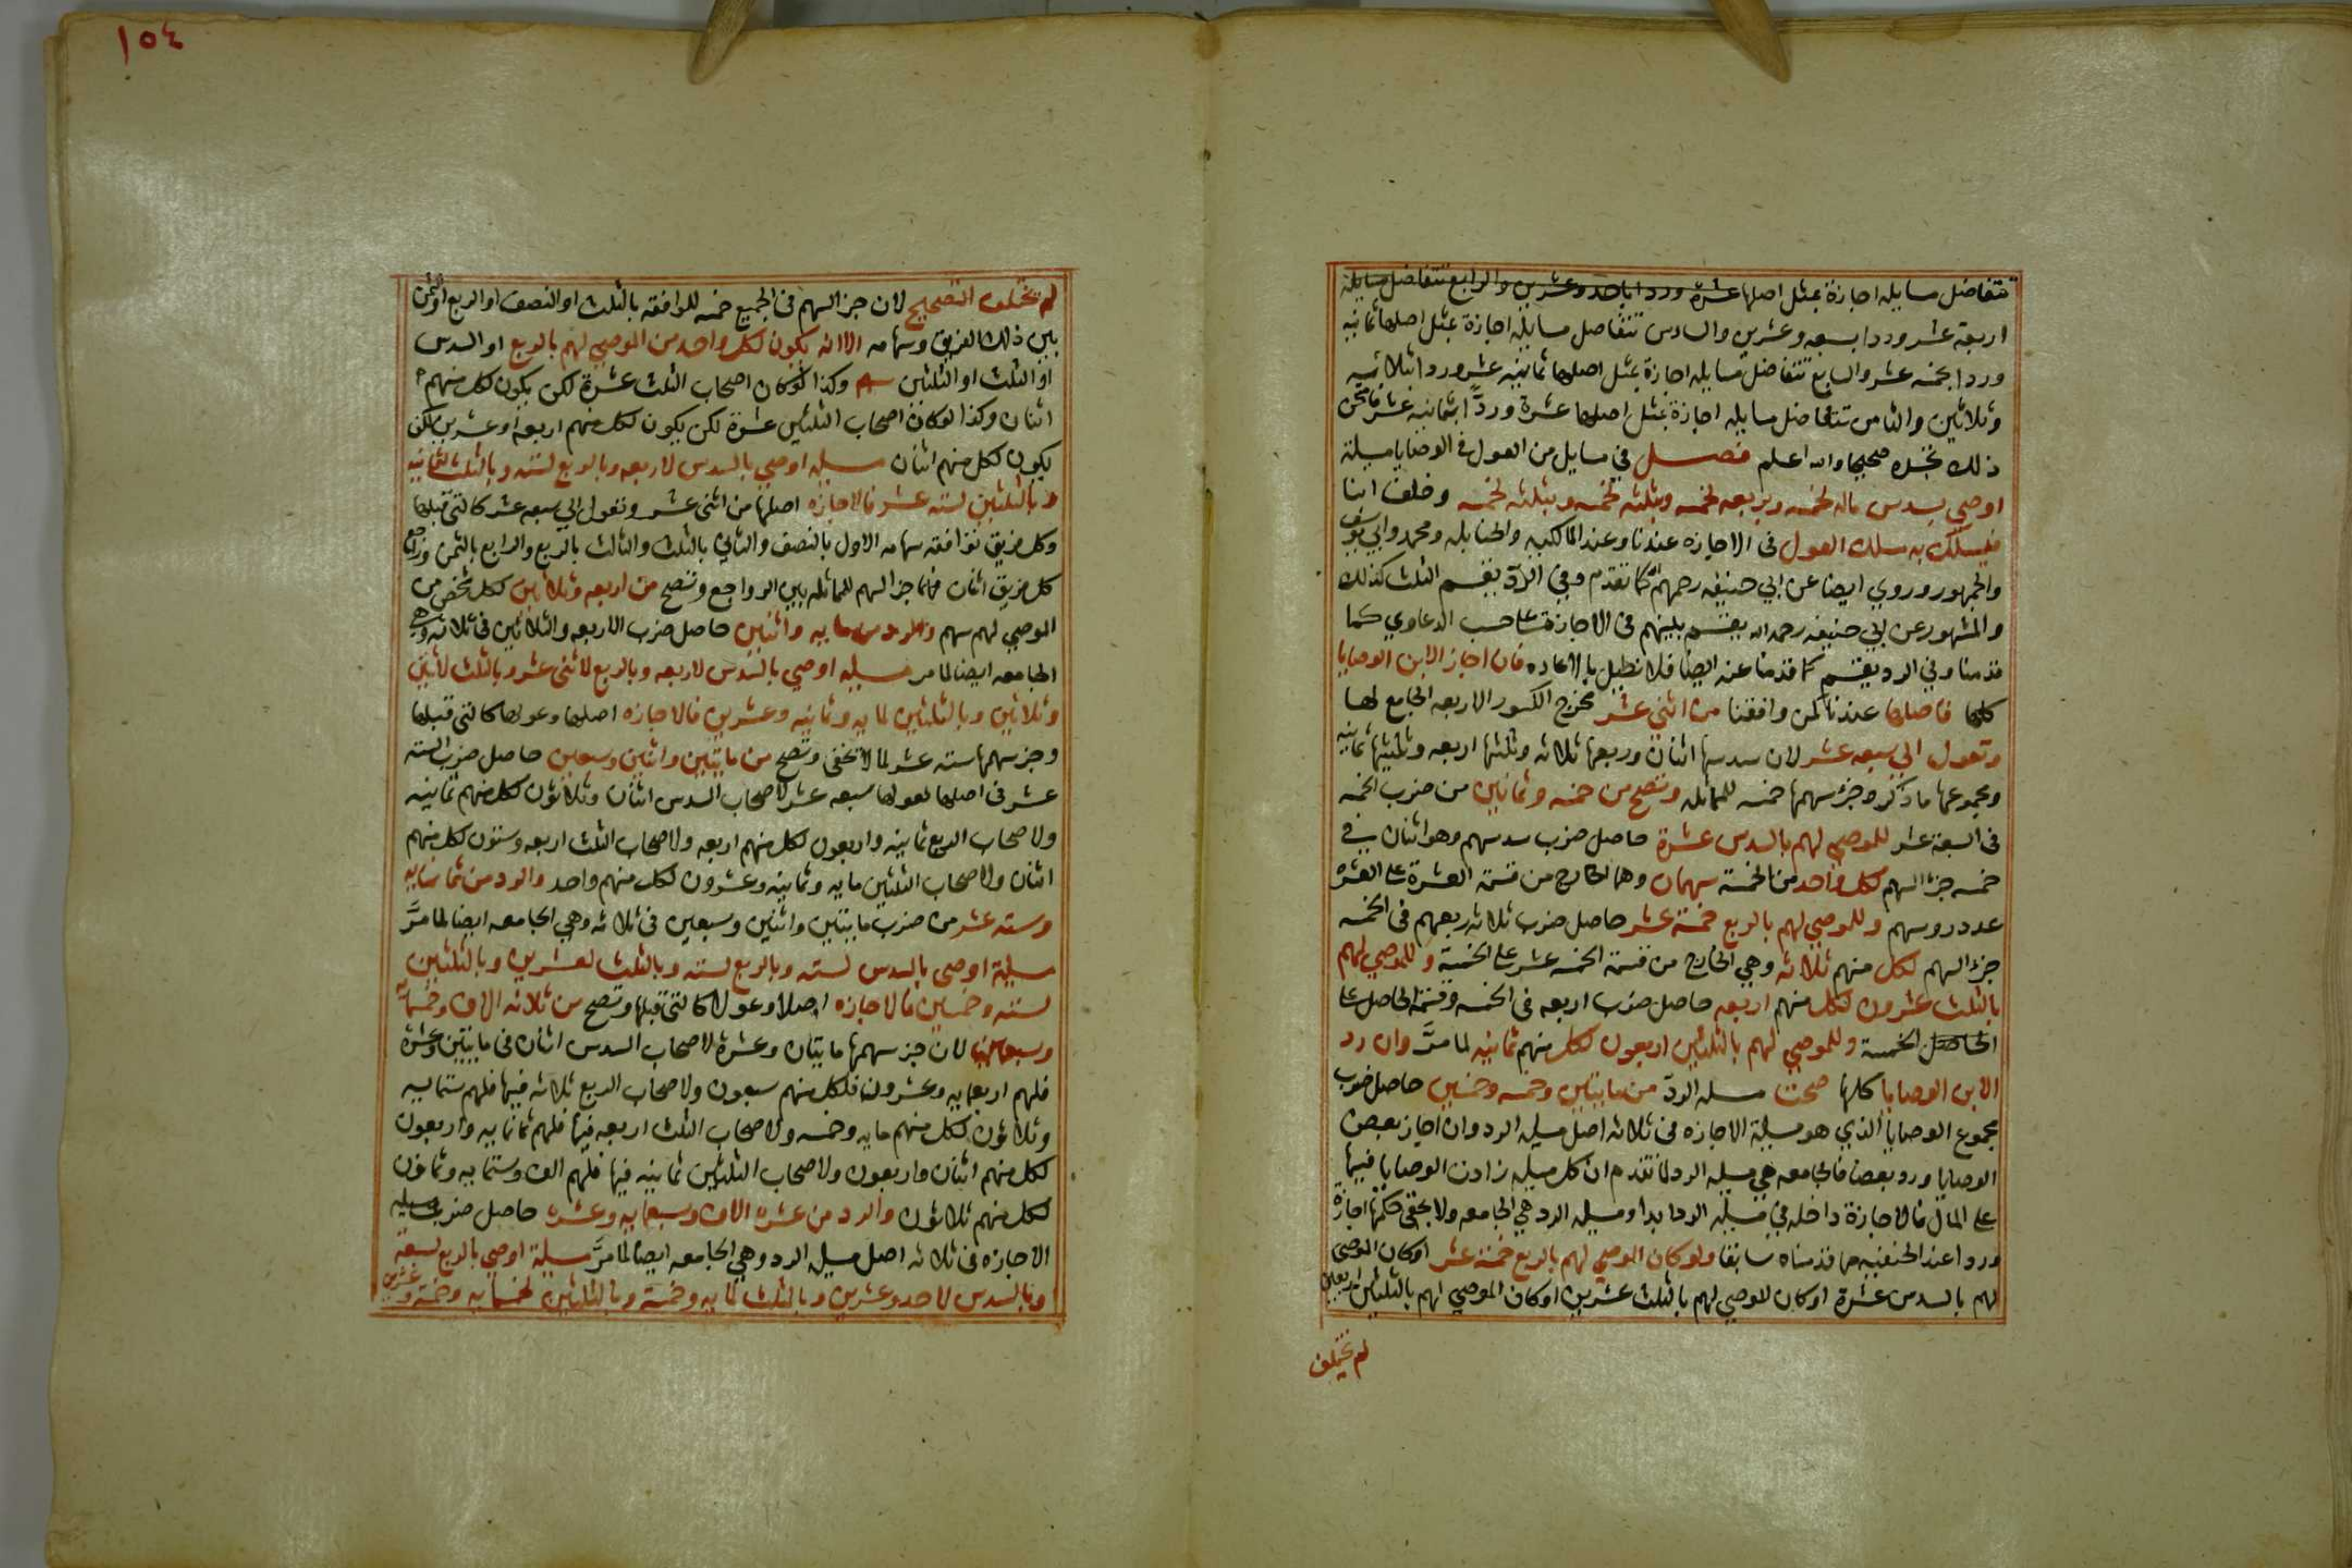 تتفاضل مسايله اجازة بمثل اصلها عشرة وردا باحد وعشرين والرابع تتفاضل مسايله
اربعة عشر وردا بسبعه وعشرين والسادس تتفاضل مسايله اجازة بمثل اصلها ثمانيه
وردا بخمسه عشر والسابع تتفاضل مسايله اجازة بمثل اصلها ثمانيه عشر وردا بثلاثه
وثلاثين والثامن تتفاضل مسايله اجازة بمثل اصلها عشرة وردّا بثمانيه عشر فامتحن
ذلك تجده صحيحا والله اعلم فصل في مسايل من العول في الوصايا مسيلة
اوصي بسدس ماله لخمسه وبربعه لخمسه وبثلثه لخمسه وبثلثيه لخمسه وخلف ابنا
فيسلك به مسلك العول فى الاجازه عندنا وعند المالكيه والحنابله ومحمد وابي يوسف
والجمهور وروي ايضا عن ابي حنيفه رحمهم الله كما تقدم وفي الردّ يقسم الثلث كذلك
والمشهور عن ابي حنيفه رحمه الله يقسم بينهم فى الاجازة على حسب الدعاوي كما
قدمنا وفي الرد يقسم كما قدمنا عنه ايضا فلا نطيل بالاعاده فان اجاز الابن الوصايا
كلها فاصلها عندنا كمن وافقنا من اثني عشر مخرج الكسور الاربعه الجامع لها
وتعول الي سبعه عشر لان سدسها اثنان وربعها ثلاثه وثلثها اربعه وثلثيها ثمانيه
ومجموعها ما ذكر وجزء سهمها خمسه للمماثله وتصح من خمسه وثمانين من ضرب الخمسه
فى السبعة عشر للموصي لهم بالسدس عشرة حاصل ضرب سدسهم وهو اثنان في
خمسه جزء السهم لكل واحد من الخمسة سهمان وهما الخارج من قسمة العشرة على الخمسه
عدد روسهم وللموصي لهم بالربع خمسة عشر حاصل ضرب ثلاثه ربعهم فى الخمسه
جزء السهم لكل منهم ثلاثه وهي الخارج من قسمة الخمسه عشر على الخمسة وللموصي لهم
بالثلث عشرون لكل منهم اربعه حاصل ضرب اربعه فى الخمسه وقسمة الحاصل على
الخمسة وللموصي لهم بالثلثين اربعون لكل منهم ثمانيه لما مرَّ وان رد
الابن الوصايا كلها صحت مسله الردّ من مايتين وخمسه وخمسين حاصل ضرب
مجموع الوصايا الذي هو مسيلة الاجازه فى ثلاثه اصل مسيله الرد وان اجاز بعض
الوصايا ورد بعضا فالجامعه هي مسيله الرد لما تقدم ان كل مسيله زادت الوصايا فيها
على المال فالاجازة داخله في مسيله الرد ابدا ومسيله الرد هي الجامعه ولا يخفى حكمها اجازة
وردا عند الحنفيه مما قدمناه سابقا ولو كان الموصي لهم بالربع خمسة عشر او كان الموصى
لهم بالسدس عشرة او كان الموصي لهم بالثلث عشرين او كان الموصي لهم بالثلثين اربعين
لم تختلف
١٥٤
لم تختلف التصحيح لان جزء السهم فى الجميع خمسه للموافقه بالثلث او النصف او الربع او الثمن
بين ذلك الفريق وسهامه الا انه يكون لكل واحد من الموصي لهم بالربع او السدس
او الثلث او الثلثين وكذا لو كان اصحاب الثلث عشرة لكن يكون لكل منهم
اثنان وكذا لو كان اصحاب الثلثين عشرة لكن يكون لكل منهم اربعه او عشرين لكن
يكون لكل منهم اثنان مسيله اوصي بالسدس لاربعه وبالربع لسته وبالثلث لثمانيه
وبالثلثين لسته عشر فالاجازه اصلها من اثنى عشر وتعول الي سبعه عشر كالتى قبلها
وكل فريق توافقه سهامه الاول بالنصف والثاني بالثلث والثالث بالربع والرابع بالثمن وراجع
كل فريق اثنان فهما جزء السهم للمماثله بين الرواجع وتصح من اربعه وثلاثين لكل شخص من
الموصي لهم سهم والرد من مايه واثنين حاصل ضرب الاربعه والثلاثين فى ثلاثه وهي
الجامعه ايضا لما مر مسيله اوصي بالسدس لاربعه وبالربع لاثنى عشر وبالثلث لاثنين
وثلاثين وبالثلثين لمايه وثمانيه وعشرين فالاجازه اصلها وعولها كالتى قبلها
وجزء سهمها سته عشر لما لا يخفى وتصح من مايتين واثنين وسبعين حاصل ضرب السته
عشر فى اصلها لعولها سبعه عشر لاصحاب السدس اثنان وثلاثون لكل منهم ثمانيه
ولاصحاب الربع ثمانيه واربعون لكل منهم اربعه ولاصحاب الثلث اربعه وستون لكل منهم
اثنان ولاصحاب الثلثين مايه وثمانيه وعشرون لكل منهم واحد والرد من ثمانمايه
وسته عشر من ضرب مايتين واثنين وسبعين فى ثلاثه وهي الجامعه ايضا لما مرَّ
مسيلة اوصى بالسدس لسته وبالربع لسته وبالثلث لعشرين وبالثلثين
لسته وخمسين فالاجازه اصلا وعولا كالتى قبلها وتصح من ثلاثه الاف وخمسمايه
وسبعين لان جزء سهمها مايتان وعشرة لاصحاب السدس اثنان فى مايتين وعشرة
فلهم اربعمايه وعشرون فلكل منهم سبعون ولاصحاب الربع ثلاثه فيها فلهم ستمايه
وثلاثون لكل منهم مايه وخمسه ولاصحاب الثلث اربعه فيها فلهم ثمانمايه واربعون
لكل منهم اثنان واربعون ولاصحاب الثلثين ثمانيه فيها فلهم الف وستمايه وثمانون
لكل منهم ثلاثون والرد من عشره الاف وسبعمايه وعشره حاصل ضرب مسيله
الاجازه فى ثلاثه اصل مسيله الرد وهي الجامعه ايضا لما مرَّ مسيلة اوصي بالربع لسبعة
وبالسدس لاحد وعشرين وبالثلث لمايه وخمسة وبالثلثين لخمسمايه وخمسة وعشرين